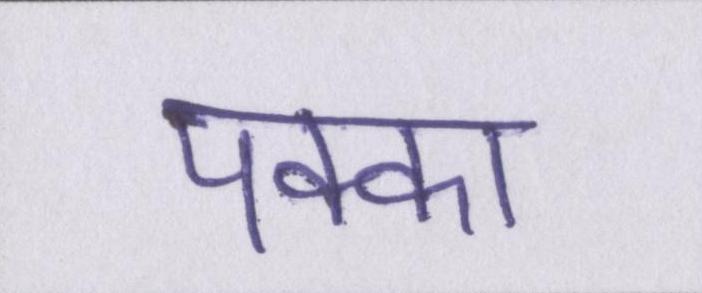 पक्का